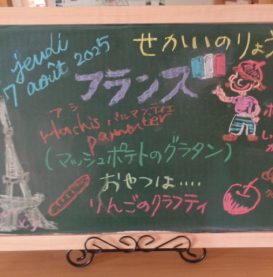 jeudi
7 août 2025
せかいのりょう
フランス
アシ パルマンティエ
Hachis
parmentier
(マッシュポテトのグラタン)
おやつは....
りんごのクラフティ